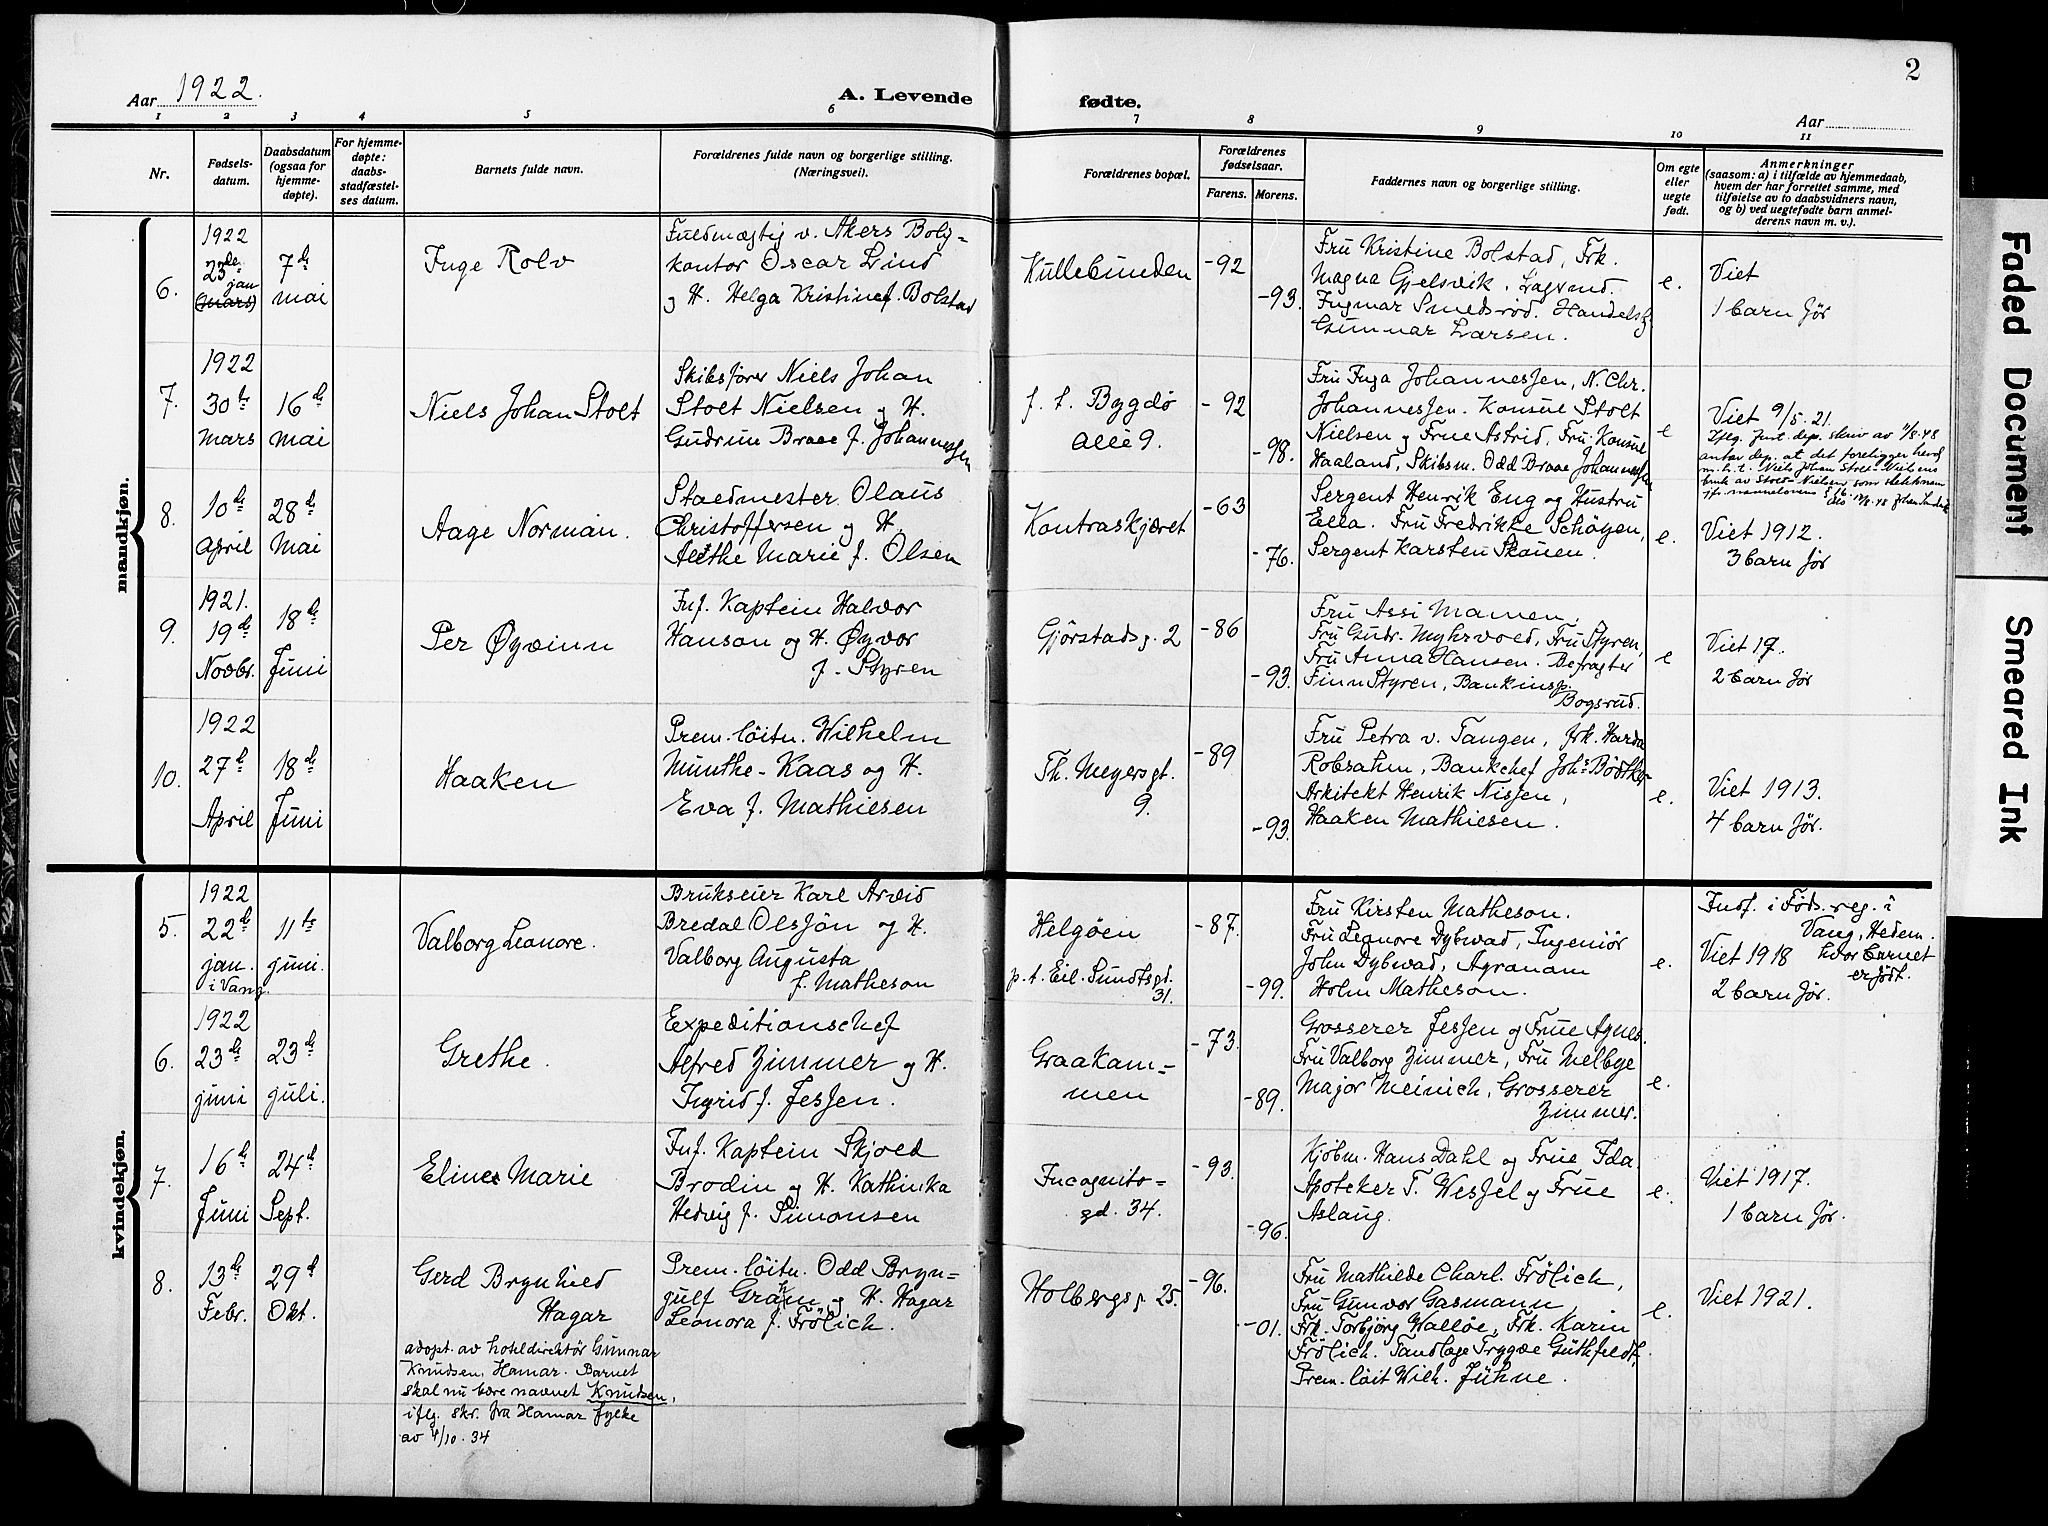 2
Aar 1922.
A. Levende
fødte.
Aar
1 2 3 4 5 6 7 8 9 10 11
Nr.
Fødsels-
datum.
Daabsdatum
(ogsaa for
hjemme-
døpte).
For hjemme-
døpte:
daabs-
stadfæstel-
ses datum.
Barnets fulde navn.
Forældrenes fulde navn og borgerlige stilling.
(Næringsvei).
Forældrenes bopæl.
Forældrenes
fødselsaar.
Farens. Morens.
Faddernes navn og borgerlige stilling.
Om egte
eller
uegte
født.
Anmerkninger
(saasom: a) i tilfælde av hjemmedaab,
hvem der har forrettet samme, med
tilføielse av to daabsvidners navn,
og b) ved uegtefødte barn anmel-
derens navn m. v.).
mandkjøn.
6.
1922
23de
jan
(mars)
7de
mai
Inge Rolv
Fuldmægtig v. Akers Bolig=
kontor Oscar Lind
og H. Helga Kristine f. Bolstad
Kullebunden
-92
-93.
Fru Kristine Bolstad, Frk.
Magna Gjelsvik, Lagründ.
Ingmar Smedsrød. Handelsf.
Gunnar Larsen.
e.
Viet
1 barn før
7.
1922
30te
Mars
16de
mai
Niels Johan Stolt
Skibsfører Niels Johan
Stolt Nielsen og H.
Gudrun Braae f. Johannessen
f. t. Bygdø
alle 9.
-92
-98.
Fru Inga Johannessen, N. Chr.
Johannessen. Konsul Stolt
Nielsen og Frue Astrid. Fru Konsul
Haaland, Skibsm. Odd Braae Johannessen
e
Viet 9/5. 21.
Iflg. Just. dep. skriv av 11/8.48
antar dep. at det foreligger hevd
m. h. t. Niels Johan Stolt-Nielsens
bruk av Stolt-Nielsen som slektsnavn
jfr. navnelovens § 16.
8.
10de
April
28de
Mai
Aage Norman.
Staldmester Olaus
Christoffersen og H.
Alethe Marie f. Olsen
Kontraskjæret
-63
-76.
Sergent Henrik Eng og Hustru
Ella. Fru Fredrikke Schøyen,
Sergent Karsten Skauen.
e.
Viet 1912.
3 barn før
9.
1921.
19de
Novbr.
18de
Juni
Per Øyvinn
Inf. Kaptein Halvor
Hansøn og H. Øyvor
f. Styren
Gjørstadsg. 2
-86
-93.
Fru Assi Mamen,
Fru Gudr. Myhrvold, Fru Styren,
Fru Anna Hansen. Befragter
Finn Styren, Bankinsp.
Bogsrud.
e
Viet 17.
2 barn før
10.
1922
27de
April
18de
Juni
Haaken
Prem. løitn. Wilhelm
Munthe-Kaas og H.
Eva f. Mathiesen
Th. Meyersgt.
9.
-89
-93.
Fru Petra v. Tangen, frk. Harda
Robsahm, Bankchef Johs. Bødtker
Arkitekt Henrik Nissen,
Haaken Mathiesen.
e.
Viet 1913.
4 barn før.
kvindekjøn.
5.
1922
22de
jan.
i Vang.
11te
juni.
Valborg Leonore.
Brukseier Karl Arvid
Bredal Olsjøn og H.
Valborg Augusta
f. Matheson
Helgøen
p. t. Eil. Sundtsgd.
31.
-87.
-99.
Fru Kirsten Matheson.
Fru Leonore Dybwad, Ingeniør
John Dybwad, Agronom
Holm Matheson.
e.
Indf. i Føds. reg. i
Vang, Hedem.
hvor barnet
er født.
Viet 1918
2 barn før.
6.
1922
23de
juni
23de
juli.
Grethe.
Expeditionschef
Alfred Zimmer og H.
Ingrid f. Jessen.
Graakam=
men
-73.
-89.
Grosserer Jessen og Frue Agnes.
Fru Valborg Zimmer, Fru Melbye
Major Meinich, Grosserer
Zimmer.
e.
7.
16de
Juni
24de
Sept.
Eline Marie
Inf. Kaptein Skjold
Brodin og H. Kathinka
Hedvig f. Simonsen
Incognito=
gd. 34.
-93.
-96.
Kjøbm. Hans Dahl og Frue Ida.
Apoteker T. Wessel og Frue
Aslaug.
e.
Viet 1917.
1 barn før.
8.
13de
Febr.
29de
Okt.
Gerd Brynhild
Hagar
adopt. av hoteldirektør Gunnar
Knudsen, Hamar. Barnet
skal nu bære navnet Knudsen,
iflg. skr. fra Hamar fylke
av 4/10. 34
Prem. løitn. Odd Bryn=
julf Grahn og H. Hagar
Leonora f. Frölich.
Holbergsg. 25.
-96.
-01.
Fru Mathilde Charl. Frölich,
Fru Gunvor Gasmann
Frk. Torbjørg Walløe, Frk. Karin
Frölich. Tandlæge Trygve Güthfeldt,
Prem. løit Wilh. Jühne.
e.
Viet 1921.
Faded Document
Smeared Ink